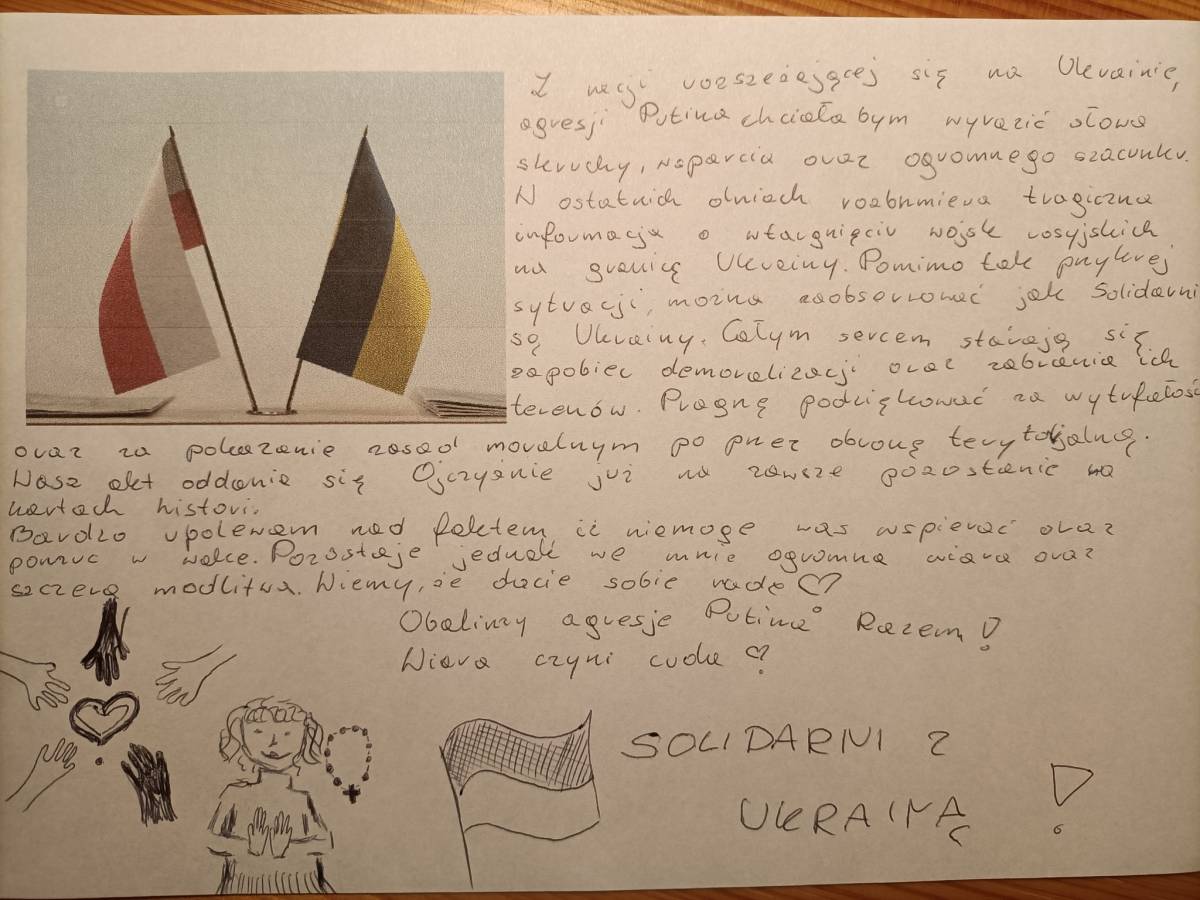 Z racji rozszeżającej się na Ukrainie,
agresji Putina chciała bym wyrazić słowa
skruchy, wsparcia oraz ogromnego szacunku.
W ostatnich dniach rozbrmiewa tragiczna
informacja o wtargnięciu wojsk rosyjskich
na granicę Ukrainy. Pomimo tak przykrej
sytuacji, można zaobserwować jak Solidarni
są Ukrainy. Całym sercem starają się
zapobiec demoralizacji oraz zabrania ich
terenów. Pragnę podziękować za wytrfałość
oraz za pokazanie zasad moralnym po przez obronę terytorjalną.
Wasz akt oddania się Ojczyźnie już na zawsze pozostanie na
kartach histori.
Bardzo upolewam nad faktem, iż niemoge was wspierać oraz
pomuc w walce. Pozostaje jednak we mnie ogromna wiara oraz
szczera modlitwa. Wiemy, że dacie sobie radę ♡
Obalimy agresje Putina Razem!
Wiara czyni cuda ♡
SOLIDARNI Z
UKRAINĄ !